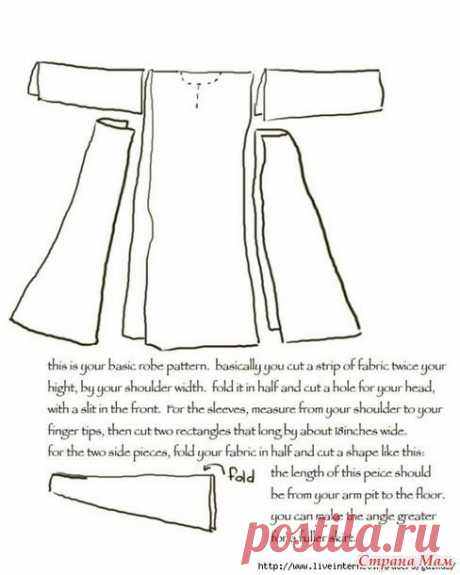 this is your basic robe pattern. basically you cut a strip of fabric twice your
hight, by your shoulder width. fold it in half and cut a hole for your head,
with a slit in the front. For the sleeves, measure from your shoulder to your
finger tips, then cut two rectangles that long by about 18inches wide.
for the two side pieces, fold your fabric in half and cut a shape like this:
fold
the length of this peice should
be from your arm pit to the floor.
you can make the angle greater
for a fuller skirt.
postila.ru
Страна Мам
http://www.liveinter